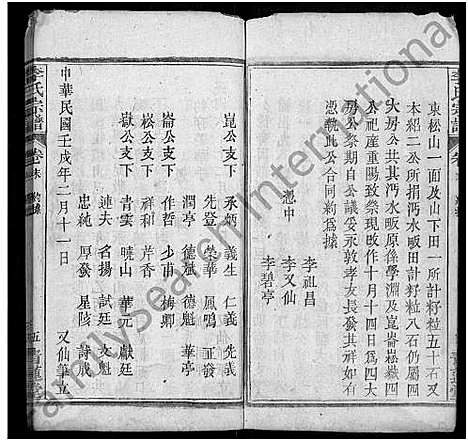 東松山一面及山下田一所計籽粒五十石又
本紹二公所捐沔水畈田計籽粒八石仍屬四
大房公共其沔水畈原係學淵及崑崙崧巘四
公祀產重陽致祭現改作十月十四日為四大
房公祭期自公議妥永敦孝友長發其祥如有
憑執此公合同約為據
憑中
李祖昌
李又仙
李碧亭
崑公支下
承炳 義生 仁義
先登 榮華 先義
鳳鳴 正發
崙公支下
德魁 華亭
作哲 少甫 梅卿
崧公支下
祥和 芹香
公支下
青雲 曉山 華元 獻廷
達夫 名揚 試廷 文魁
忠純 厚發 星陵 詩成
中華民國壬戌年二月十一日
又仙筆立
李氏宗譜
卷末
五
李氏宗譜
FamilySearch International